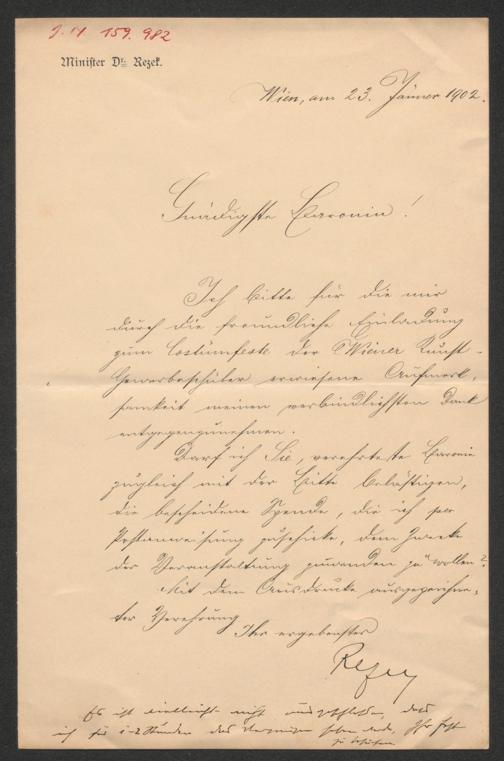 J. N. 159.982
Minister Dr. Rezek.
Wien, am 23. Jänner 1902.
Gnädigste Baronin!
Ich bitte für die mir
durch die freundliche Einladung
zum Costümfeste der Wiener Kunst-
Gewerbeschüler erwiesene Aufmerk-
samkeit meinen verbindlichsten Dank
entgegenzunehmen.
Darf ich Sie, verehrteste Baronin
zugleich mit der Bitte belästigen,
die bescheidene Spende, die ich per
Postanweisung zuschicke, dem Zwecke
der Veranstaltung zuwenden zu wollen?
Mit dem Ausdrucke ausgezeichne-
ter Verehrung
Ihr ergebenster
Rezek
Es ist vielleicht nicht ausgeschlossen, dass
ich für 1-2 Stunden das Vergnügen haben werde, Ihr Fest
zu besuchen